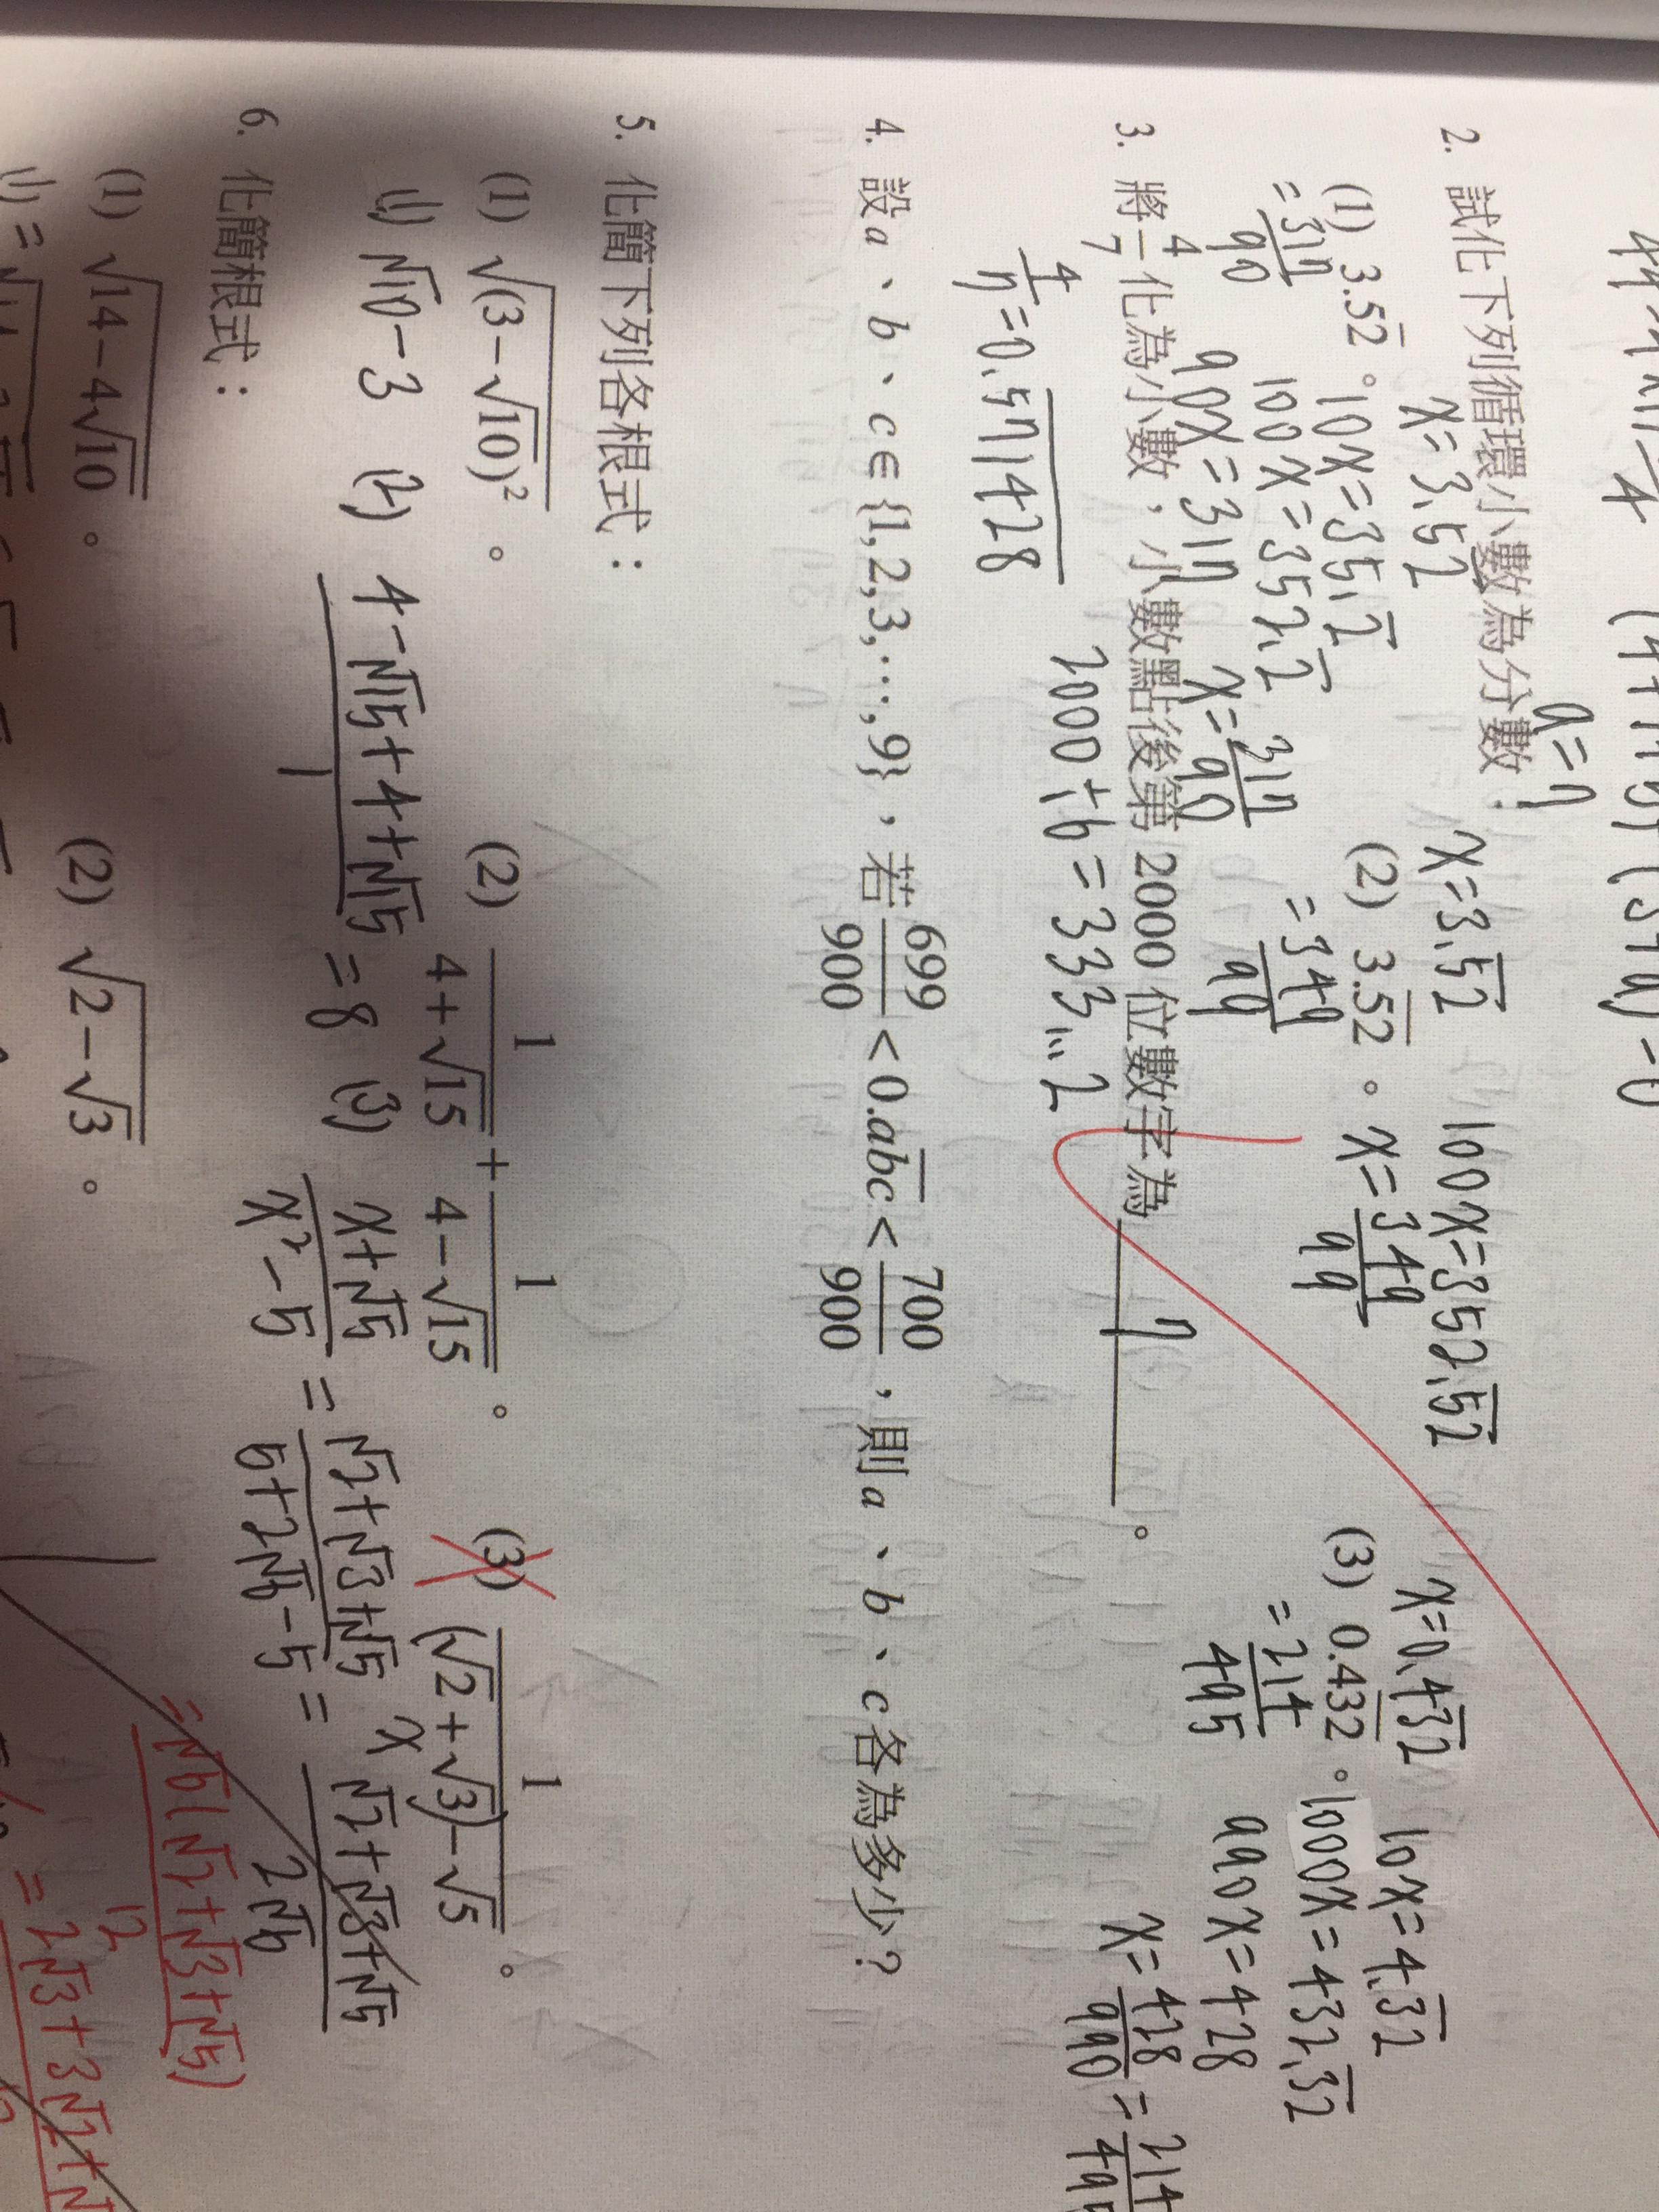 a=7
2. 試化下列循環小數為分數：
x=3.5\overline{2}
x=3.\overline{52}
100x=352.\overline{52}
x=0.4\overline{32}
10x=4.\overline{32}
(1) 3.5\overline{2}。
10x=35.\overline{2}
(2) 3.\overline{52}。
x=\frac{349}{99}
(3) 0.4\overline{32}。
1000x=432.\overline{32}
=\frac{317}{90}
100x=352.\overline{2}
=\frac{349}{99}
=\frac{214}{495}
990x=428
90x=317
x=\frac{317}{90}
x=\frac{428}{990}=\frac{214}{495}
3. 將\frac{4}{7}化為小數，小數點後第 2000 位數字為 7 。
\frac{4}{7}=0.\overline{571428}
2000÷6=333…2
4. 設a、b、c∈{1,2,3,⋯,9}，若\frac{699}{900}<0.a\overline{bc}<\frac{700}{900}，則a、b、c各為多少？
5. 化簡下列各根式：
(1) \sqrt{(3-\sqrt{10})^2}。
(2) \frac{1}{4+\sqrt{15}}+\frac{1}{4-\sqrt{15}}。
(3) \frac{1}{(\sqrt{2}+\sqrt{3})-\sqrt{5}}。
(1) \sqrt{10}-3
(2) \frac{4-\sqrt{15}+4+\sqrt{15}}{1}=8
(3) \frac{x+\sqrt{5}}{x^2-5}=\frac{\sqrt{2}+\sqrt{3}+\sqrt{5}}{5+2\sqrt{6}-5}=\frac{\sqrt{2}+\sqrt{3}+\sqrt{5}}{2\sqrt{6}}
x
=\frac{\sqrt{6}(\sqrt{2}+\sqrt{3}+\sqrt{5})}{12}
6. 化簡根式：
(1) \sqrt{14-4\sqrt{10}}。
(2) \sqrt{2-\sqrt{3}}。
=2\sqrt{3}+3\sqrt{2}+
(1)=